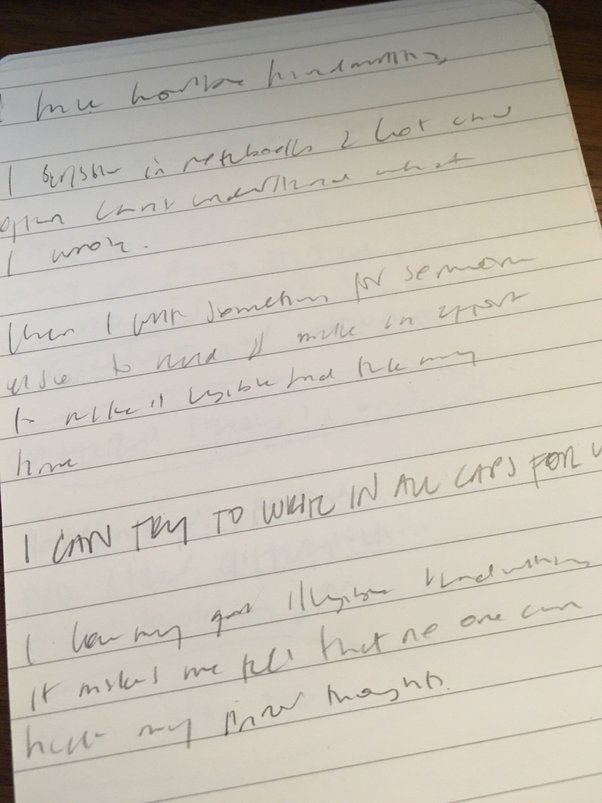 I have horrible handwriting
I scribble in notebooks a lot and
often can't understand what
I wrote.
When I write something for someone
else to read I'll make an effort
to make it legible and take my
time
I CAN TRY TO WRITE IN ALL CAPS FOR
I love my illegible handwriting
It makes me feel that no one can
my inner thoughts.